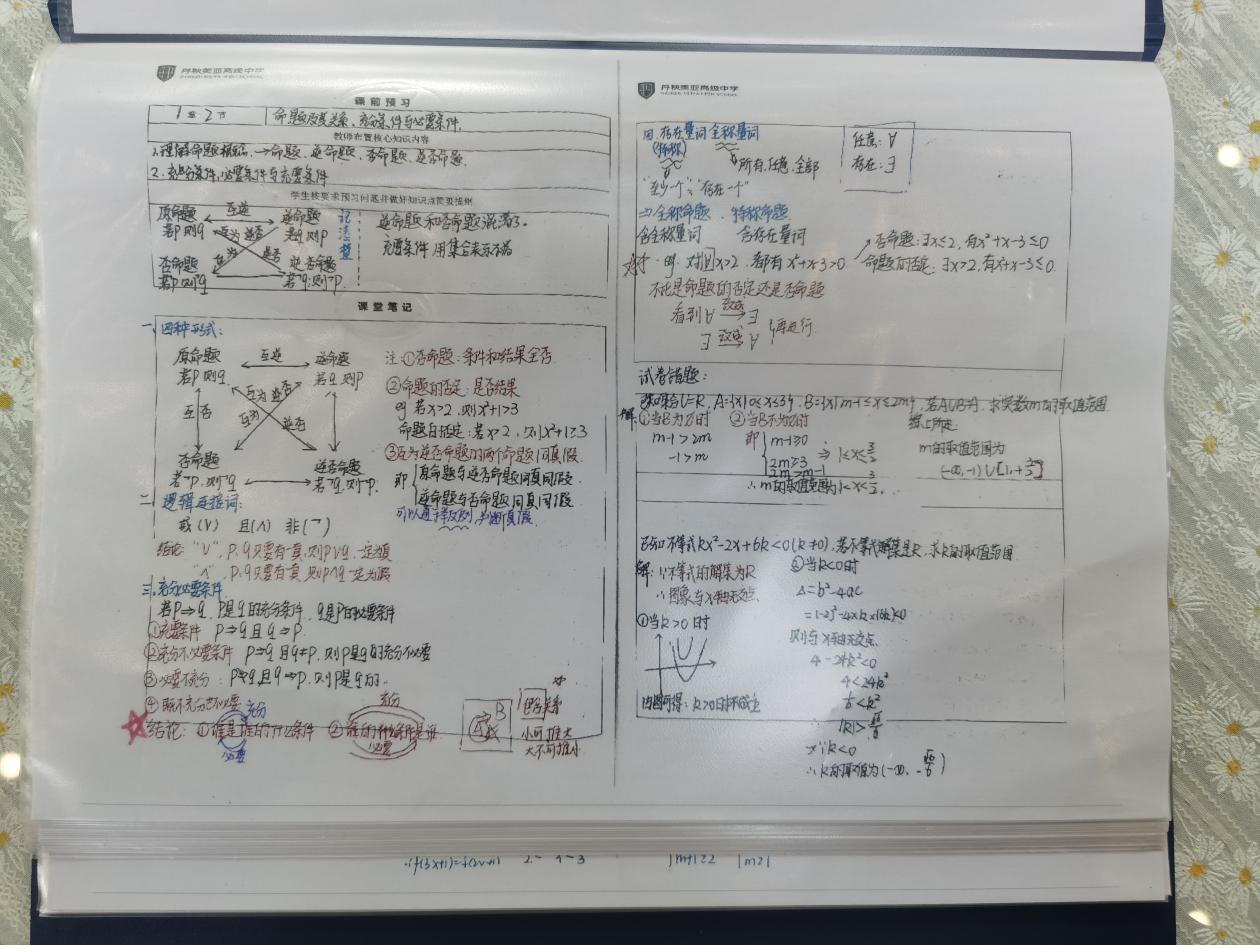 丹秋美亚高级中学
课前预习
1章2节 命题及其关系、充分条件与必要条件.
教师布置核心知识内容
1.理解命题概念.→命题、逆命题、否命题、逆否命题.
2.充分条件,必要条件与充要条件
学生按要求预习问题并做好知识点简要梳理
原命题 互逆 逆命题
若p则q 互为逆否 若q则p
否命题 互为 逆否 逆否命题
若¬p则¬q 若¬q则¬p.
逆命题和否命题混淆了.
充要条件 用集合表示不清
课堂笔记
一、四种形式:
原命题 互逆 逆命题
若p则q 若q则p
互否 互为逆否
互为 逆否
否命题 逆否命题
若¬p.则¬q 若¬q.则¬p.
注:①否命题:条件和结果全否
②命题的否定:是否结果
例 若x>2,则x²+1>3
③互为逆否命题的两个命题同真同假.
即 原命题与逆否命题同真同假
逆命题与否命题同真同假
二、逻辑连接词:
或(∨) 且(∧) 非(¬)
结论:"∨",p.q只要有一真,则p∨q一定为真
"∧",p.q只要有一 则p∧q一定为假
三、充分必要条件
若p⇒q,p是q的充分条件,q是p的必要条件
①充要条件 p⇒q且q⇒p.
②充分不必要条件 p⇒q且q⇏p.则p是q的充分不必要
③必要不充分: p⇏q,且q⇒p.则p是q的.
④既不充分也不必要
充分 充分
结论: ①谁是谁的什么条件 ②谁的什么条件是谁
必要 必要
A B
小可推大
大不可推小
丹秋美亚高级中学
四.存在量词 全称量词
(特称) 所有.任意.全部
任意:∀
存在:∃
"至少一个"、"存在一个"
⇒全称命题、特称命题
含全称量词 含存在量词
例.对∀x>2,都有x²+x-3>0
否命题:∃x≤2,有x²+x-3≤0
命题的否定:∃x>2,有x²+x-3≤0
不论是命题的否定还是否命题
看到∀ 改成 ∃
∃ 改成 ∀
再进行
试卷错题:
U=R, A={x|0≤x≤3}, B={x|m-1≤x≤2m}, 若A∪B=A, 求实数m的取值范围
解:①当B为∅时 ②当B不为∅时 综上所述
m-1>2m 即 m-1≥0
-1>m 2m≤3
2m≥m-1
m的取值范围为
(-∞,-1)∪[1,+3/2]
∴m的取值范围为
已知不等式kx²-2x+6k<0(k≠0),若不等式解集是R,求k的取值范围
解:∵不等式的解集为R
∴图象与x轴无交点.
①当k>0时
由图可得:k>0时不成立
②当k<0时
Δ=b²-4ac
=(-2)²-4×k×(6k)<0
则与x轴无交点.
4-24k²<0
4<24k²
1/6<k²
|k|>√6/6
又∵k<0
∴k的取值为(-∞,-√6/6)